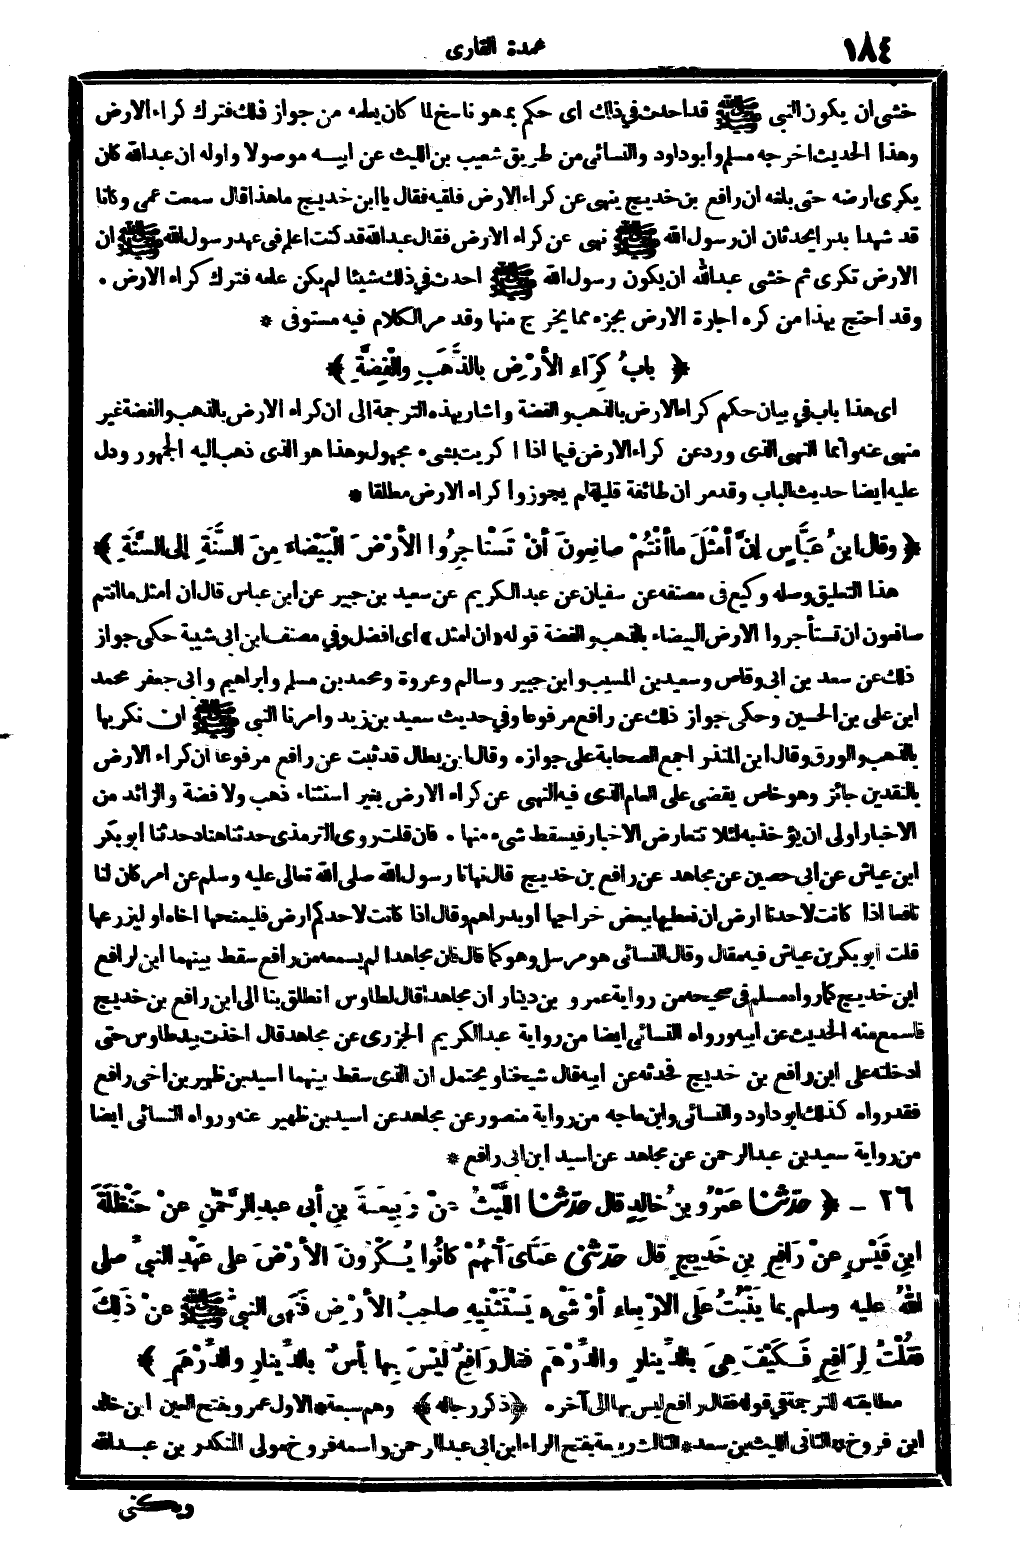 ١٨٤
عمدة القارى
خشى ان يكون النبى ﷺ قد احدث فى ذلك اى حكم بما هو ناسخ لما كان يعلمه من جواز ذلك فترك كراء الارض
وهذا الحديث اخرجه مسلم وأبو داود والنسائى من طريق شعيب بن الليث عن ابيه موصولا واوله ان عبدالله كان
يكرى ارضه حتى بلغه ان رافع بن خديج ينهى عن كراء الارض فلقيه فقال يا ابن خديج ما هذا قال سمعت عمى وكانا
قد شهدا بدرا يحدثان ان رسول الله ﷺ نهى عن كراء الارض فقال عبدالله قد كنت اعلم فى عهد رسول الله ﷺ ان
الارض تكرى ثم خشى عبدالله ان يكون رسول الله ﷺ احدث فى ذلك شيئا لم يكن علمه فترك كراء الارض .
وقد أحتج بهذا من كره أجارة الارض بجزء مما يخرج منها وقد مر الكلام فيه مستوفى *
﴿ بابُ كِرَاءِ الأرْضِ بالذَّهَبِ والْفِضَّةِ ﴾
اى هذا باب فى بيان حكم كراء الارض بالذهب والفضة واشار بهذه الترجمة الى ان كراء الارض بالذهب والفضة غير
منهى عنه وانما النهى الذى ورد عن كراء الارض فيما اذا اكريت بشىء مجهول وهذا هو الذى ذهب اليه الجمهور ودل
عليه أيضا حديث الباب وقد مر ان طائفة قليلة لم يجوزوا كراء الارض مطلقا *
﴿ وقال ابنُ عَبَّاسٍ إنَّ أمْثَلَ ما أنْتُمْ صانِعونَ أنْ تَسْتَأجِرُوا الأرْضَ البَيْضَاءَ مِنَ السَّنَةِ إلى السَّنَةِ ﴾
هذا التعليق وصله وكيع فى مصنفه عن سفيان عن عبد الكريم عن سعيد بن جبير عن ابن عباس قال ان امثل ما انتم
صانعون ان تستأجروا الارض البيضاء بالذهب والفضة قوله «ان امثل» اى افضل وفى مصنف ابن ابى شيبة حكى جواز
ذلك عن سعد بن ابى وقاص وسعيد بن المسيب وابن جبير وسالم وعروة ومحمد بن مسلم وأبراهيم وابى جعفر محمد
ابن على بن الحسين وحكى جواز ذلك عن رافع مرفوعا وفى حديث سعيد بن زيد وامرنا النبى ﷺ ان نكريها
بالذهب والورق وقال ابن المنذر اجمع الصحابة على جوازه وقال ابن بطال قد ثبت عن رافع مرفوعا ان كراء الارض
بالنقدين جائز وهو خاص يقضى على العام الذى فيه النهى عن كراء الارض بغير استثناء ذهب ولا فضة والزائد من
الاخبار اولى ان يؤخذ به لئلا تتعارض الاخبار فيسقط شىء منها . فان قلت روى الترمذى حدثنا هناد حدثنا ابو بكر
ابن عياش عن ابى حصين عن مجاهد عن رافع بن خديج قال نهانا رسول الله صلى الله تعالى عليه وسلم عن امر كان لنا
نافعا اذا كانت لاحدنا ارض ان نعطيها ببعض خراجها او بدراهم وقال اذا كانت لاحدكم ارض فليمنحها اخاه او ليزرعها
قلت أبو بكر بن عياش فيه مقال وقال النسائى هو مرسل وهو كما قال فان مجاهدا لم يسمعه من رافع سقط بينهما ابن لرافع
ابن خديج كما رواه مسلم فى صحيحه من رواية عمرو بن دينار ان مجاهدا قال لطاوس انطلق بنا الى ابن رافع بن خديج
فاسمع منه الحديث عن ابيه ورواه النسائى ايضا من رواية عبد الكريم الجزرى عن مجاهد قال اخذت بيد طاوس حتى
ادخلته على ابن رافع بن خديج فحدثه عن ابيه قال شيخنا ويحتمل ان الذى سقط بينهما اسيد بن ظهير بن اخى رافع
فقد رواه كذلك ابو داود والنسائى وابن ماجه من رواية منصور عن مجاهد عن اسيد بن ظهير عنه ورواه النسائى ايضا
من رواية سعيد بن عبد الرحمن عن مجاهد عن اسيد ابن ابى رافع *
٢٦ - ﴿ حدّثنا عَمْرُو بنُ خالِدٍ قال حدّثنا اللَّيْثُ عنْ رَبِيعَةَ بنِ أبى عبدِ الرَّحْمٰنِ عنْ حَنْظَلَةَ
ابنِ قَيْسٍ عنْ رَافِعِ بنِ خَدِيجٍ قال حدّثنى عَمَّاىَ أنَّهُمْ كانُوا يُكْرُونَ الأرْضَ على عَهْدِ النبىِّ صلى
اللهُ عليه وسلم بما يَنْبُتُ علَى الارْبِعاءِ أوْ شَىْءٍ يَسْتَثْنِيهِ صاحِبُ الأرْضِ فَنَهى النبىُّ ﷺ عنْ ذَلِكَ
فقُلْتُ لِرَافِعٍ فَكَيْفَ هِىَ بالدِّينارِ والدِّرْهَمِ فقال رَافِعٌ لَيْسَ بِها بأسٌ بالدِّينارِ والدِّرْهَمِ ﴾
مطابقته للترجمة فى قوله فقال رافع ليس بها الى آخره ﴿ذكر رجاله﴾ وهم سبعة * الاول عمرو بفتح العين ابن خالد
ابن فروخ * الثانى الليث بن سعد * الثالث ربيعة بفتح الراء ابن ابى عبد الرحمن واسمه فروخ مولى المنكدر بن عبد الله
ويكنى